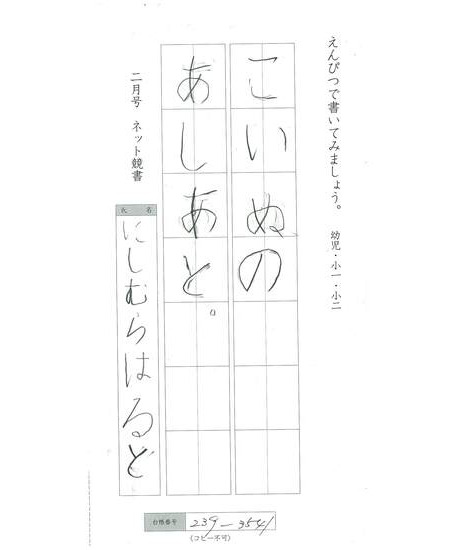 えんぴつで書いてみましょう。 幼児・小一・小二
こいぬの
あしあと。
二月号 ネット競書
氏名
にしむらはると
台帳番号 239-3541
(コピー不可)